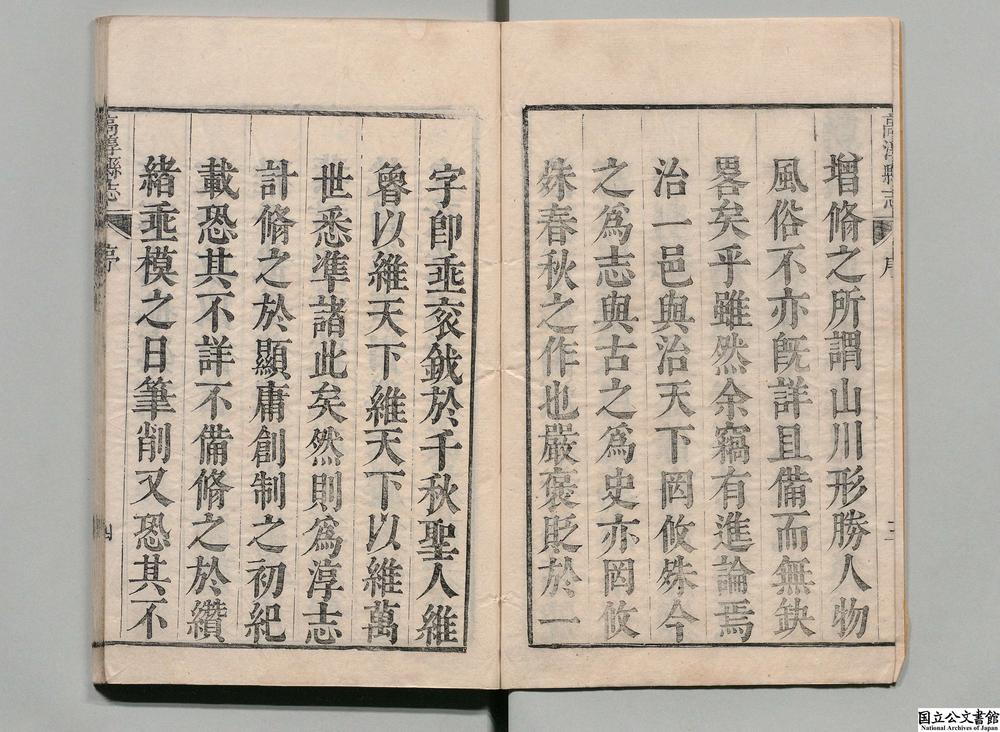 高淳縣志
序
三
增脩之所謂山川形勝人物
風俗不亦旣詳且備而無缺
畧矣乎雖然余竊有進論焉
治一邑與治天下罔攸殊今
之爲志與古之爲史亦罔攸
殊春秋之作也嚴褒貶於一
字卽埀衮鉞於千秋聖人維
魯以維天下維天下以維萬
世悉準諸此矣然則爲淳志
計脩之於顯庸創制之初紀
載恐其不詳不備脩之於纘
緒埀模之日筆削又恐其不
高淳縣志
序
四
国立公文書館
National Archives of Japan